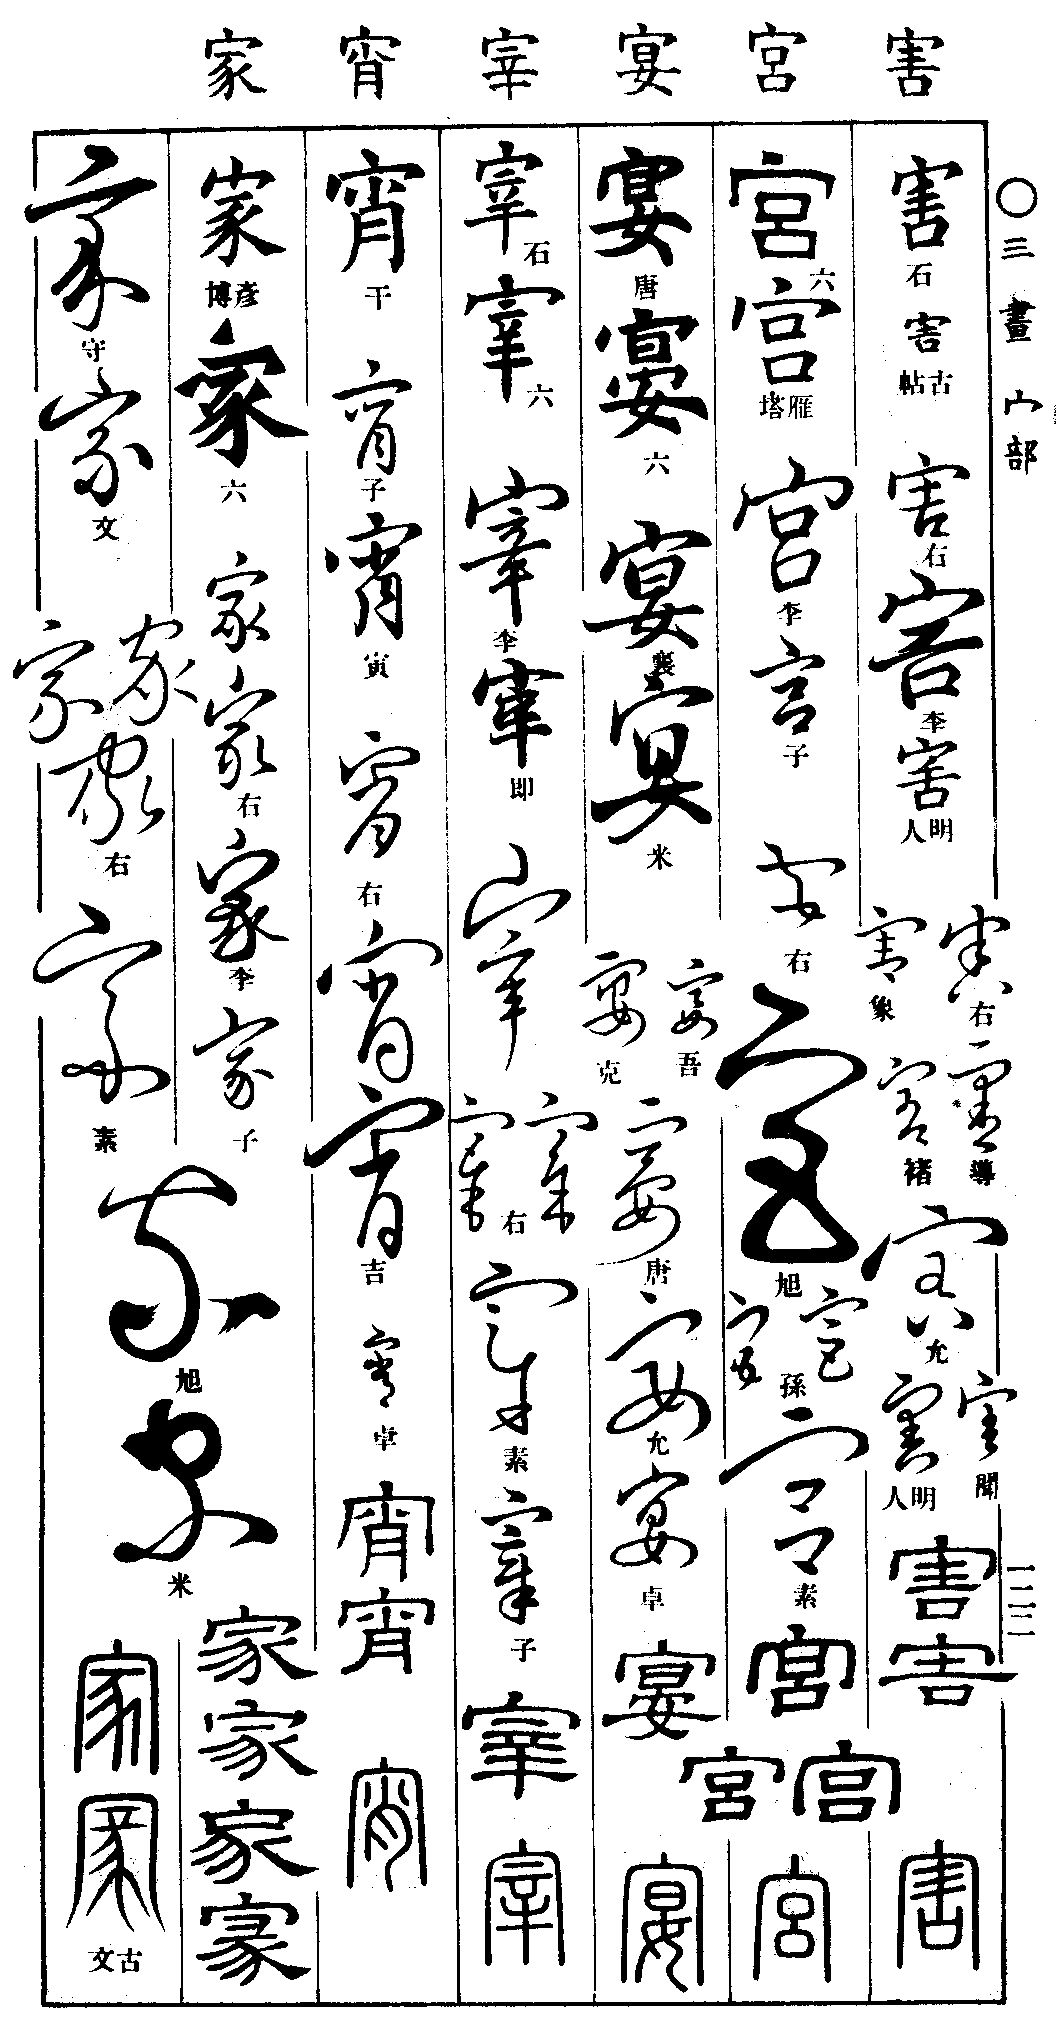 害 宮 宴 宰 宵 家
〇三畫 宀部
一二二
害 石
害 古帖
害 右
害 李
害 明人
害 右
害 象
害 導
害 褚
害 允
害 聞
害 明人
害
害
害
宮 六
宮 雁塔
宮 李
宮 子
宮 右
宮 旭
宮 宮 孫
宮 素
宮
宮 宮
宮
宴 唐
宴 六
宴 襄
宴 米
宴 吾
宴 克
宴 唐
宴 允
宴 卓
宴
宴
宰 石
宰 六
宰 李
宰 即
宰
宰 宰 右
宰 素
宰 子
宰
宰
宵 干
宵 子
宵 寅
宵 右
宵
宵 吉
宵 卓
宵
宵
宵
家 彥博
家 六
家
家 右
家 李
家 子
家 旭
家 米
家
家
家
家
家 守
家 文
家 家 家 右
家 素
家
家 古文